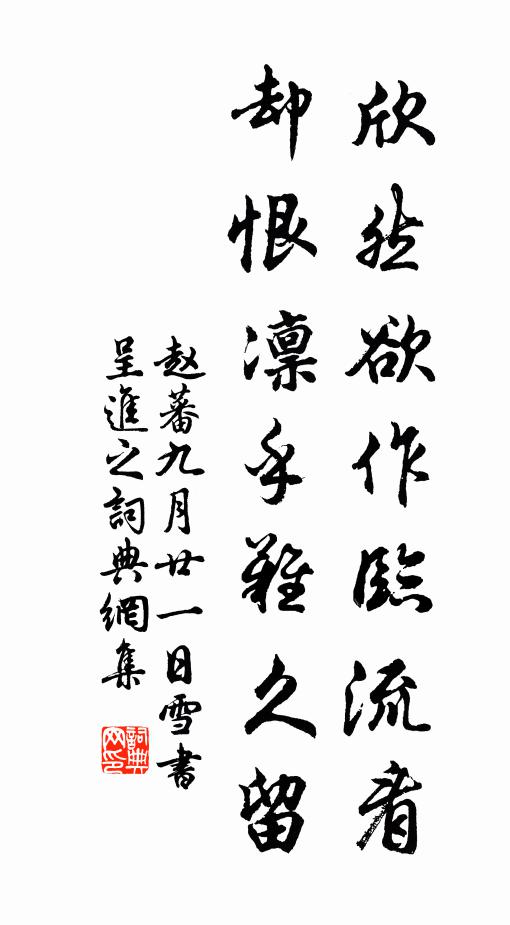 欣然欲作臨流看
却恨凛乎難久留
赵蕃九月廿一日雪書
呈進之詞典網集
詞典
网印